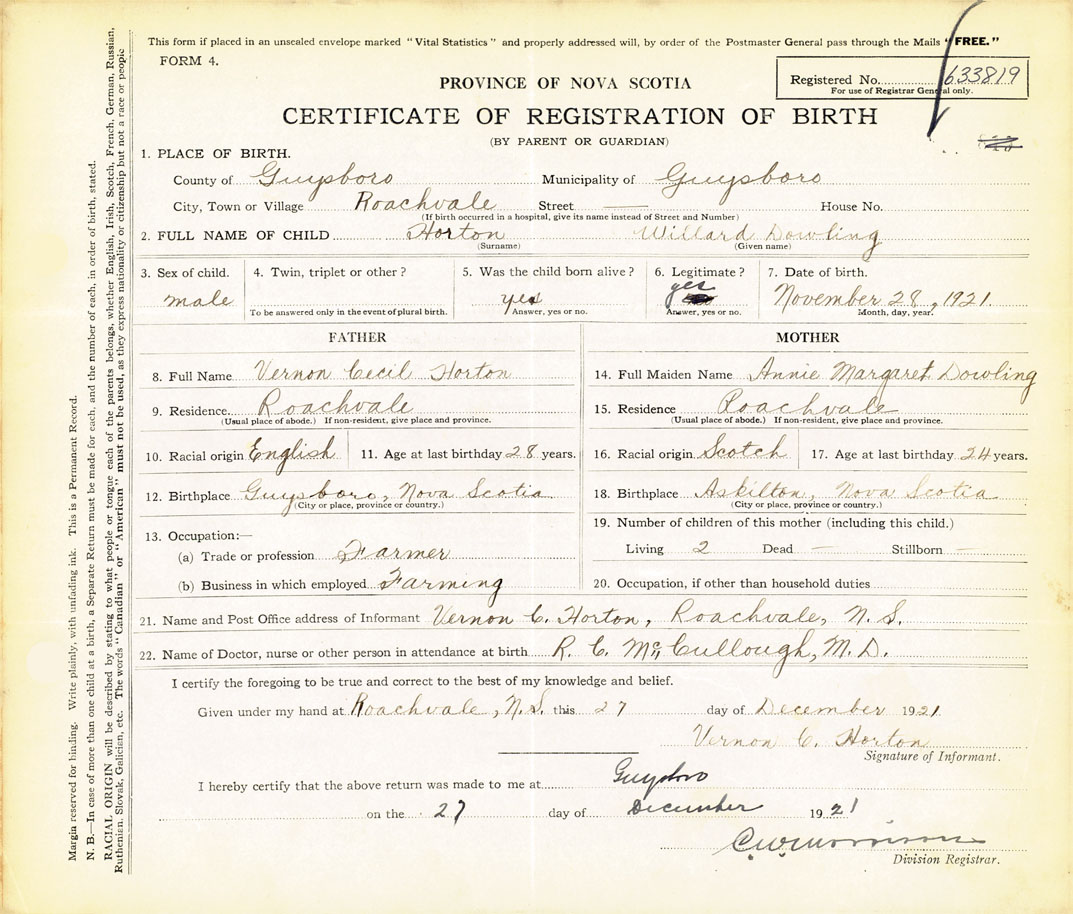 This form if placed in an unsealed envelope marked "Vital Statistics" and properly addressed will, by order of the Postmaster General pass through the Mails "FREE."
FORM 4.
Registered No. 633819
For use of Registrar General only.
PROVINCE OF NOVA SCOTIA
CERTIFICATE OF REGISTRATION OF BIRTH
(BY PARENT OR GUARDIAN)
1. PLACE OF BIRTH.
County of Guysboro Municipality of Guysboro
City, Town or Village Roachvale Street —— House No.
(If birth occurred in a hospital, give its name instead of Street and Number)
2. FULL NAME OF CHILD Horton Willard Dowling
(Surname) (Given name)
3. Sex of child. 4. Twin, triplet or other? 5. Was the child born alive? 6. Legitimate? 7. Date of birth.
male yes yes November 28, 1921
To be answered only in the event of plural birth. Answer, yes or no. Answer, yes or no. Month, day, year.
FATHER MOTHER
8. Full Name Vernon Cecil Horton 14. Full Maiden Name Annie Margaret Dowling
9. Residence. Roachvale 15. Residence Roachvale
(Usual place of abode.) If non-resident, give place and province. (Usual place of abode.) If non-resident, give place and province.
10. Racial origin English 11. Age at last birthday 28 years. 16. Racial origin Scotch 17. Age at last birthday 24 years.
12. Birthplace Guysboro, Nova Scotia 18. Birthplace Askilton, Nova Scotia
(City or place, province or country.) (City or place, province or country.)
13. Occupation:— 19. Number of children of this mother (including this child.)
(a) Trade or profession Farmer Living 2 Dead — Stillborn —
(b) Business in which employed Farming 20. Occupation, if other than household duties
21. Name and Post Office address of Informant Vernon C. Horton, Roachvale, N. S.
22. Name of Doctor, nurse or other person in attendance at birth R. C. McCullough, M. D.
I certify the foregoing to be true and correct to the best of my knowledge and belief.
Given under my hand at Roachvale, N.S. this 27 day of December 1921
Vernon C. Horton
Signature of Informant.
I hereby certify that the above return was made to me at Guysboro
on the 27 day of December 1921
C W Morrison
Division Registrar.
Margin reserved for binding. Write plainly, with unfading ink. This is a Permanent Record.
N. B.—In case of more than one child at a birth, a Separate Return must be made for each, and the number of each, in order of birth, stated.
RACIAL ORIGIN will be described by stating to what people or tongue each of the parents belongs, whether English, Irish, Scotch, French, German, Russian,
Ruthenian, Slovak, Galician, etc. The words "Canadian" or "American" must not be used, as they express nationality or citizenship but not a race or people